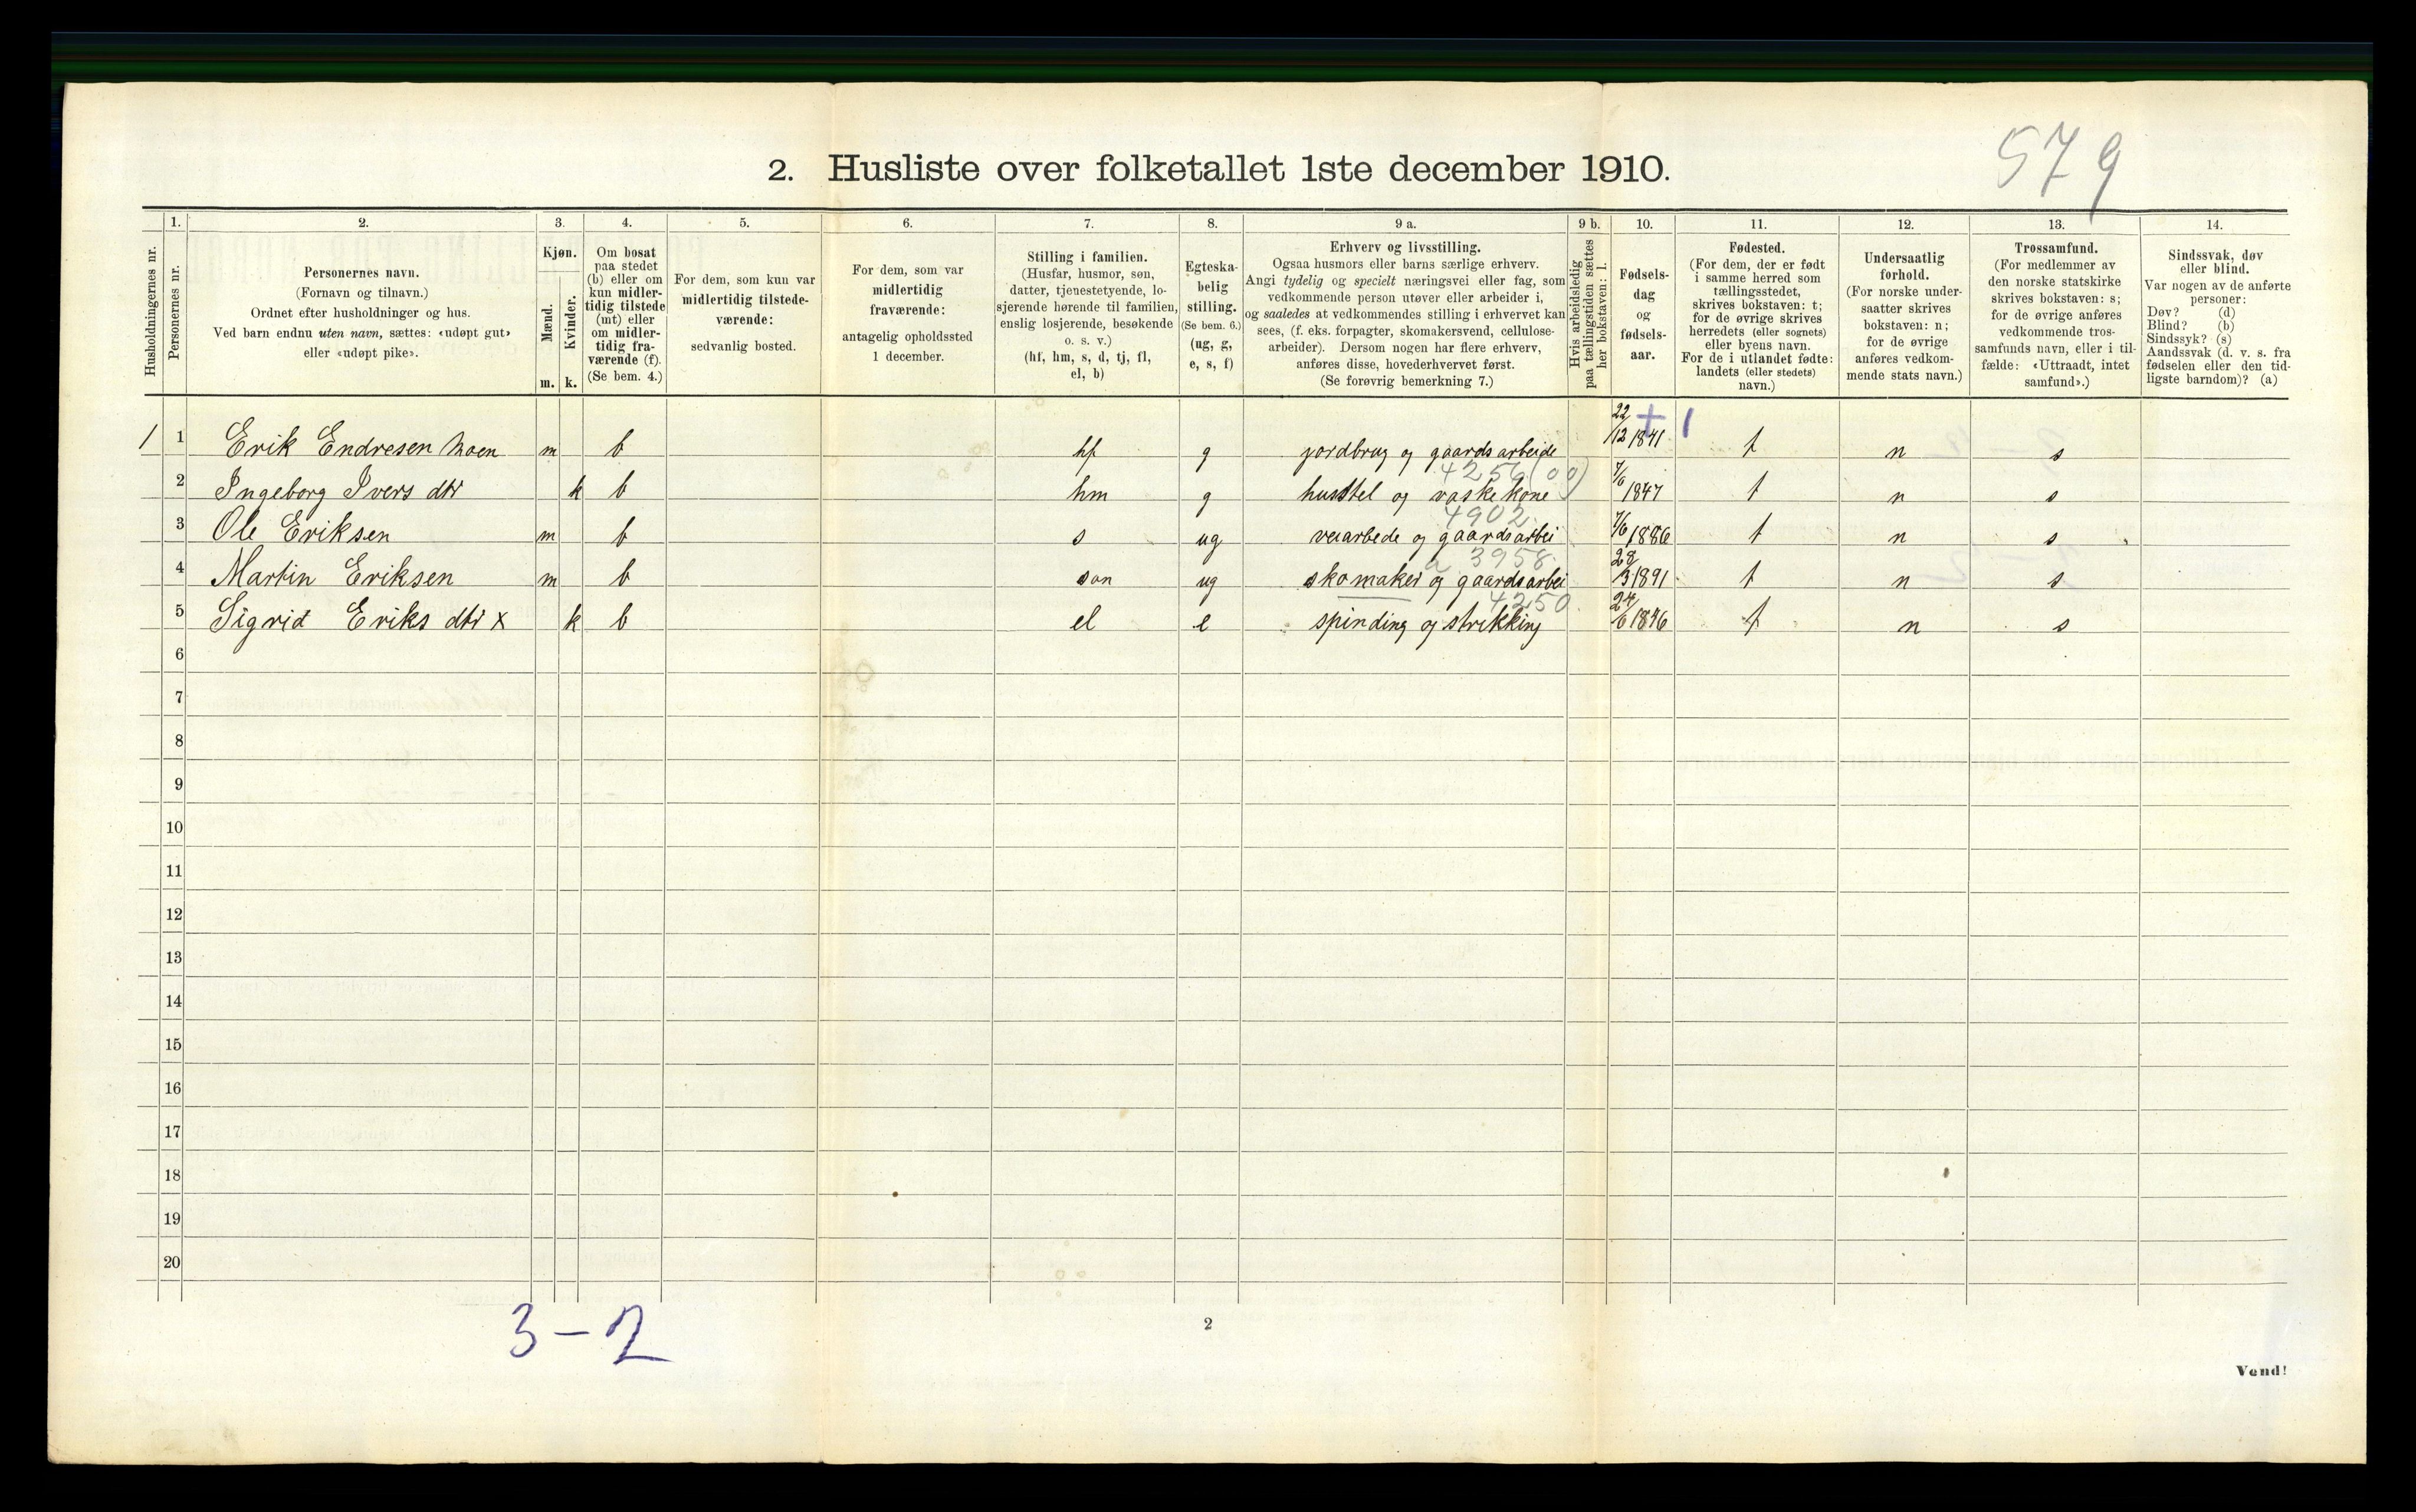 579
2. Husliste over folketallet 1ste december 1910.
Husholdningernes nr.
1.
Personernes nr.
2.
Personernes navn.
(Fornavn og tilnavn.)
Ordnet efter husholdninger og hus.
Ved barn endnu uten navn, sættes: «udøpt gut»
eller «udøpt pike».
3.
Kjøn.
Mænd.
m.
Kvinder.
k.
4.
Om bosat
paa stedet
(b) eller om
kun midler-
tidig tilstede
(mt) eller
om midler-
tidig fra-
værende (f).
(Se bem. 4.)
5.
For dem, som kun var
midlertidig tilstede-
værende:
sedvanlig bosted.
6.
For dem, som var
midlertidig
fraværende:
antagelig opholdssted
1 december.
7.
Stilling i familien.
(Husfar, husmor, søn,
datter, tjenestetyende, lo-
sjerende hørende til familien,
enslig losjerende, besøkende
o. s. v.)
(hf, hm, s, d, tj, fl,
el, b)
8.
Egteska-
belig
stilling.
(Se bem. 6.)
(ug, g,
e, s, f)
9 a.
Erhverv og livsstilling.
Ogsaa husmors eller barns særlige erhverv.
Angi tydelig og specielt næringsvei eller fag, som
vedkommende person utøver eller arbeider i,
og saaledes at vedkommendes stilling i erhvervet kan
sees, (f. eks. forpagter, skomakersvend, cellulose-
arbeider). Dersom nogen har flere erhverv,
anføres disse, hovederhvervet først.
(Se forøvrig bemerkning 7.)
9 b.
Hvis arbeidsledig
paa tællingstiden sættes
her bokstaven: l.
10.
Fødsels-
dag
og
fødsels-
aar.
11.
Fødested.
(For dem, der er født
i samme herred som
tællingsstedet,
skrives bokstaven: t;
for de øvrige skrives
herredets (eller sognets)
eller byens navn.
For de i utlandet fødte:
landets (eller stedets)
navn.)
12.
Undersaatlig
forhold.
(For norske under-
saatter skrives
bokstaven: n;
for de øvrige
anføres vedkom-
mende stats navn.)
13.
Trossamfund.
(For medlemmer av
den norske statskirke
skrives bokstaven: s;
for de øvrige anføres
vedkommende tros-
samfunds navn, eller i til-
fælde: «Uttraadt, intet
samfund».)
14.
Sindssvak, døv
eller blind.
Var nogen av de anførte
personer:
Døv? (d)
Blind? (b)
Sindssyk? (s)
Aandssvak (d. v. s. fra
fødselen eller den tid-
ligste barndom)? (a)
1 1 Erik Endresen Moen m b hf g jordbrug og gaardsarbeide 22/12 1841 + 1 t n s
4256 (00)
2 Ingeborg Ivers dtr k b hm g husstel og vaskekone 7/6 1847 t n s
4902
3 Ole Eriksen m b s ug veiarbede og gaardsarbei 7/6 1886 t n s
a 3958
4 Martin Eriksen m b søn ug skomaker og gaardsarbei 28/3 1891 t n s
4250
5 Sigrid Eriks dtr x k b el e spinding og strikking 24/6 1846 t n s
6
7
8
9
10
11
12
13
14
15
16
17
18
19
20
3-2
2
Vend!